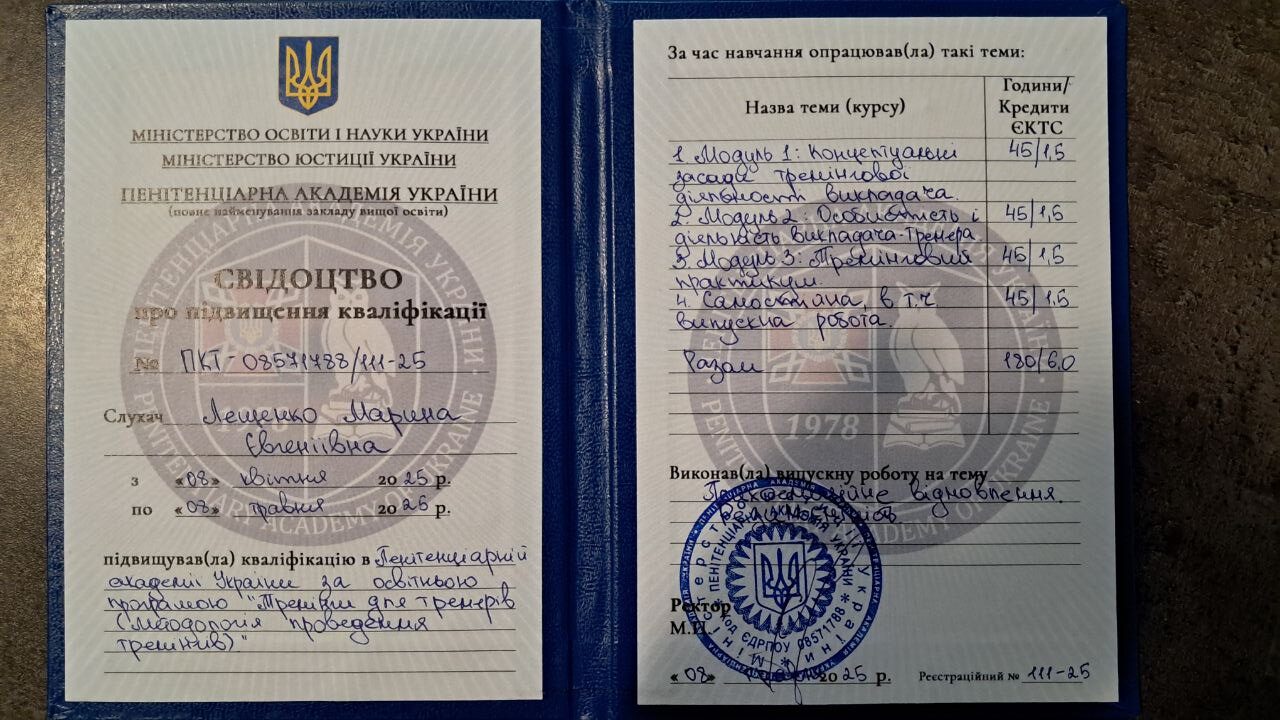 МІНІСТЕРСТВО ОСВІТИ І НАУКИ УКРАЇНИ
МІНІСТЕРСТВО ЮСТИЦІЇ УКРАЇНИ
ПЕНІТЕНЦІАРНА АКАДЕМІЯ УКРАЇНИ
(повне найменування закладу вищої освіти)
СВІДОЦТВО
про підвищення кваліфікації
№ ПКТ-08571788/111-25
Слухач Лещенко Марина
Євгеніївна
з «08» квітня 2025 р.
по «08» травня 2025 р.
підвищував(ла) кваліфікацію в Пенітенціарній
академії України за освітньою
програмою "Тренінги для тренерів
(методологія проведення
тренінгів)"
За час навчання опрацював(ла) такі теми:
Назва теми (курсу) Години/
Кредити
ЄКТС
1. Модуль 1: Концептуальні 45/1,5
засади тренінгової
діяльності викладача.
2. Модуль 2: Особистість і 45/1,5
діяльність викладача-тренера
3. Модуль 3: Тренінговий 45/1,5
практикум.
4. Самостійна, в т.ч. 45/1,5
випускна робота.
Разом 180/6.0
1978
Виконав(ла) випускну роботу на тему
відновлення.
Ректор
М.П.
ПЕНІТЕНЦІАРНА АКАДЕМІЯ УКРАЇНИ
КОД ЄДРПОУ 08571788
«08» 2025 р. Реєстраційний № 111-25